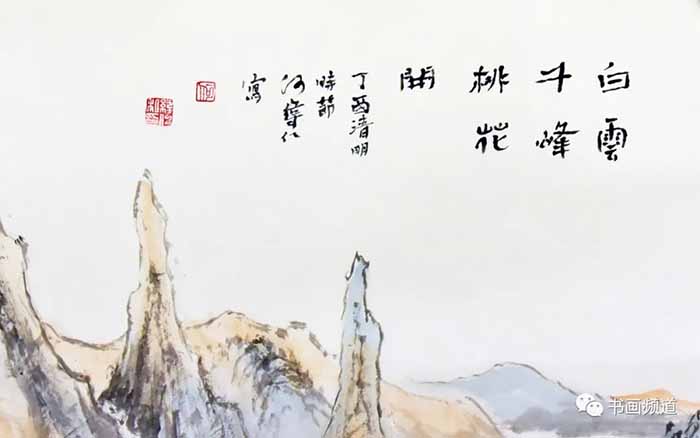 白雲
斗峰
桃花
開
丁酉清明
時節
何學仁
寫
书画频道